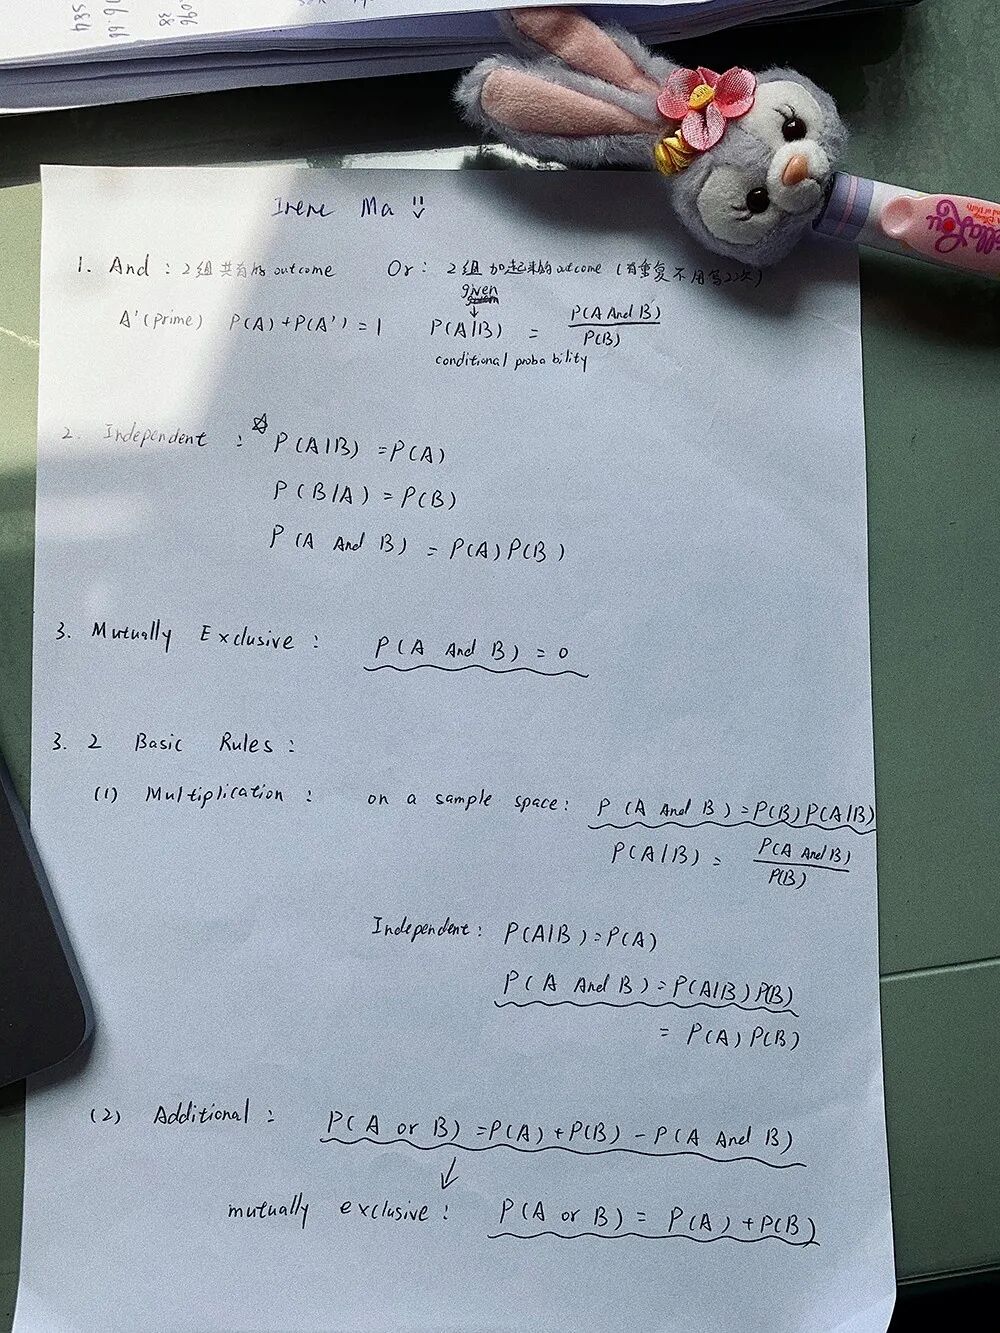 Irene Ma
1. And : 2组共有的 outcome Or : 2组加起来的 outcome (有重复不用写2次)
given
A'(prime) P(A)+P(A')=1 P(A|B) = P(A And B) / P(B)
conditional probability
2. Independent : ☆ P(A|B) = P(A)
P(B|A) = P(B)
P(A And B) = P(A)P(B)
3. Mutually Exclusive : P(A And B) = 0
3. 2 Basic Rules :
(1) Multiplication : on a sample space: P(A And B) = P(B)P(A|B)
P(A|B) = P(A And B) / P(B)
Independent : P(A|B) = P(A)
P(A And B) = P(A|B)P(B)
= P(A)P(B)
(2) Additional : P(A or B) = P(A) + P(B) - P(A And B)
mutually exclusive : P(A or B) = P(A) + P(B)